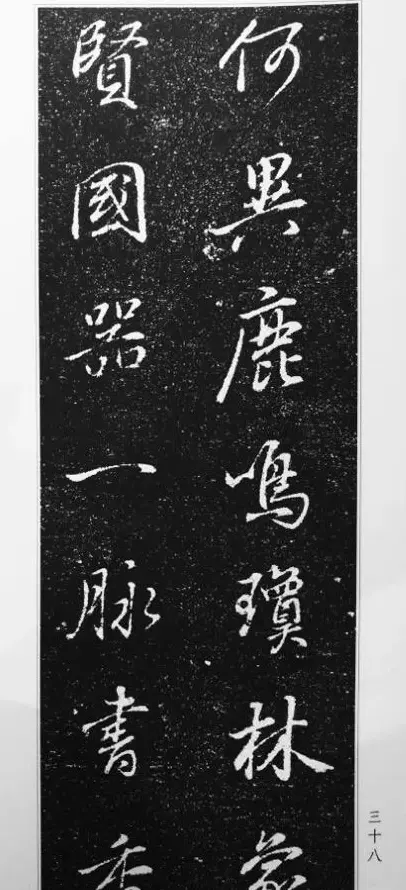 何異鹿鳴瓊林
賢國器一脉書香
三十八